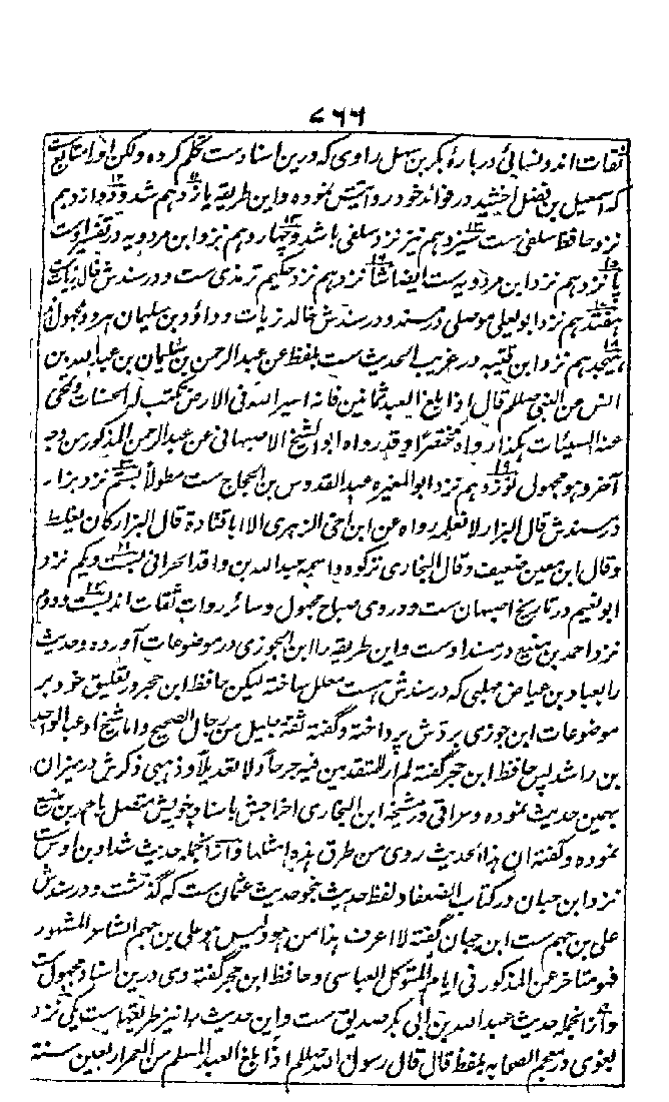 ٧٦٦
ثقات اند و نسائی دربارۂ بکر بن سہل راوی کہ درین اسنادست تکلم کردہ و لکن او را متابع ست
کہ اسمعیل بن فضل اخشید در فوائد خود روایتش نمودہ و این طریقہ یازدہم شد ۱۲ و دوازدہم
نزد حافظ سلفی ست ۱۳ سیزدہم نیز نزد سلفی باشد ۱۴ و چہاردہم نزد ابن مردویہ در تفسیر اوست
۱۵ پانزدہم نزد ابن مردویہ ست ایضا ۱۶ شانزدہم نزد حکیم ترمذی ست و در سندش خالد زیات
۱۷ ہفتدہم نزد ابو یعلی موصلی در مسند و در سندش خالد زیات و داؤد بن سلیمان ہر دو مجہول
۱۸ ہیجدہم نزد ابن قتیبہ در غریب الحدیث ست بلفظ عن عبد الرحمن بن سلیمان بن عبد اللہ بن
انس عن النبی صلعم قال اذا بلغ العبد ثمانین فانہ اسیر اللہ فی الارض تکتب لہ الحسنات و تمحی
عنہ السیئات ہکذا رواہ مختصرا و قد رواہ ابو الشیخ الاصبہانی عن عبد الرحمن المذکور من وجہ
آخر و ہو مجہول ۱۹ نوزدہم نزد ابو المغیرہ عبد القدوس بن الحجاج ست مطولا ۲۰ بستم نزد بزار
در سندش قال البزار لا نعلم رواہ عن ابن اخی الزہری الا ابا قتادة قال البزار کان یغلط
و قال ابن معین ضعیف و قال البخاری ترکوہ و اسمہ عبد اللہ بن واقد الحرانی ۲۱ بست و یکم نزد
ابو نعیم در تاریخ اصبہان ست و در وی صباح مجہول و سائر روات ثقات اند ۲۲ بست و دوم
نزد احمد بن منیع در مسند اوست و این طریقہ را ابن الجوزی در موضوعات آوردہ و حدیث
را بعباد بن عباد مہلبی کہ در سندش ہست معلل ساختہ لیکن حافظ ابن حجر در تعلیق خود بر
موضوعات ابن جوزی بردش پرداختہ و گفتہ ثقة جلیل من رجال الصحیح و اما شیخ او عبد الواحد
بن راشد پس حافظ ابن حجر گفتہ لم ار للمتقدمین فیہ جرحا و لا تعدیلا و ذہبی ذکرش در میزان
بہمین حدیث نمودہ و عراقی در مشیخہ ابن البخاری اخراجش باسناد خویش متصل باحمد بن منیع
نمودہ و گفتہ ان ہذا الحدیث روی من طرق ہذہ امثلہا و از انجملہ حدیث شداد بن اوس ست
نزد ابن حبان در کتاب الضعفا و لفظ حدیث نحو حدیث عثمان ست کہ گذشت و در سندش
علی بن جہم ست ابن حبان گفتہ لا اعرف ہذا من ہو و لیس ہو علی بن جہم الشاعر المشہور
فہو متاخر عن المذکور فی ایام المتوکل العباسی و حافظ ابن حجر گفتہ وی درین اسناد مجہول ست
و از انجملہ حدیث عبد اللہ بن ابی بکر صدیق ست و این حدیث را نیز طریقہاست یکی نزد
بغوی در معجم الصحابہ بلفظ قال قال رسول اللہ صلعم اذا بلغ العبد المسلم من العمر اربعین سنة